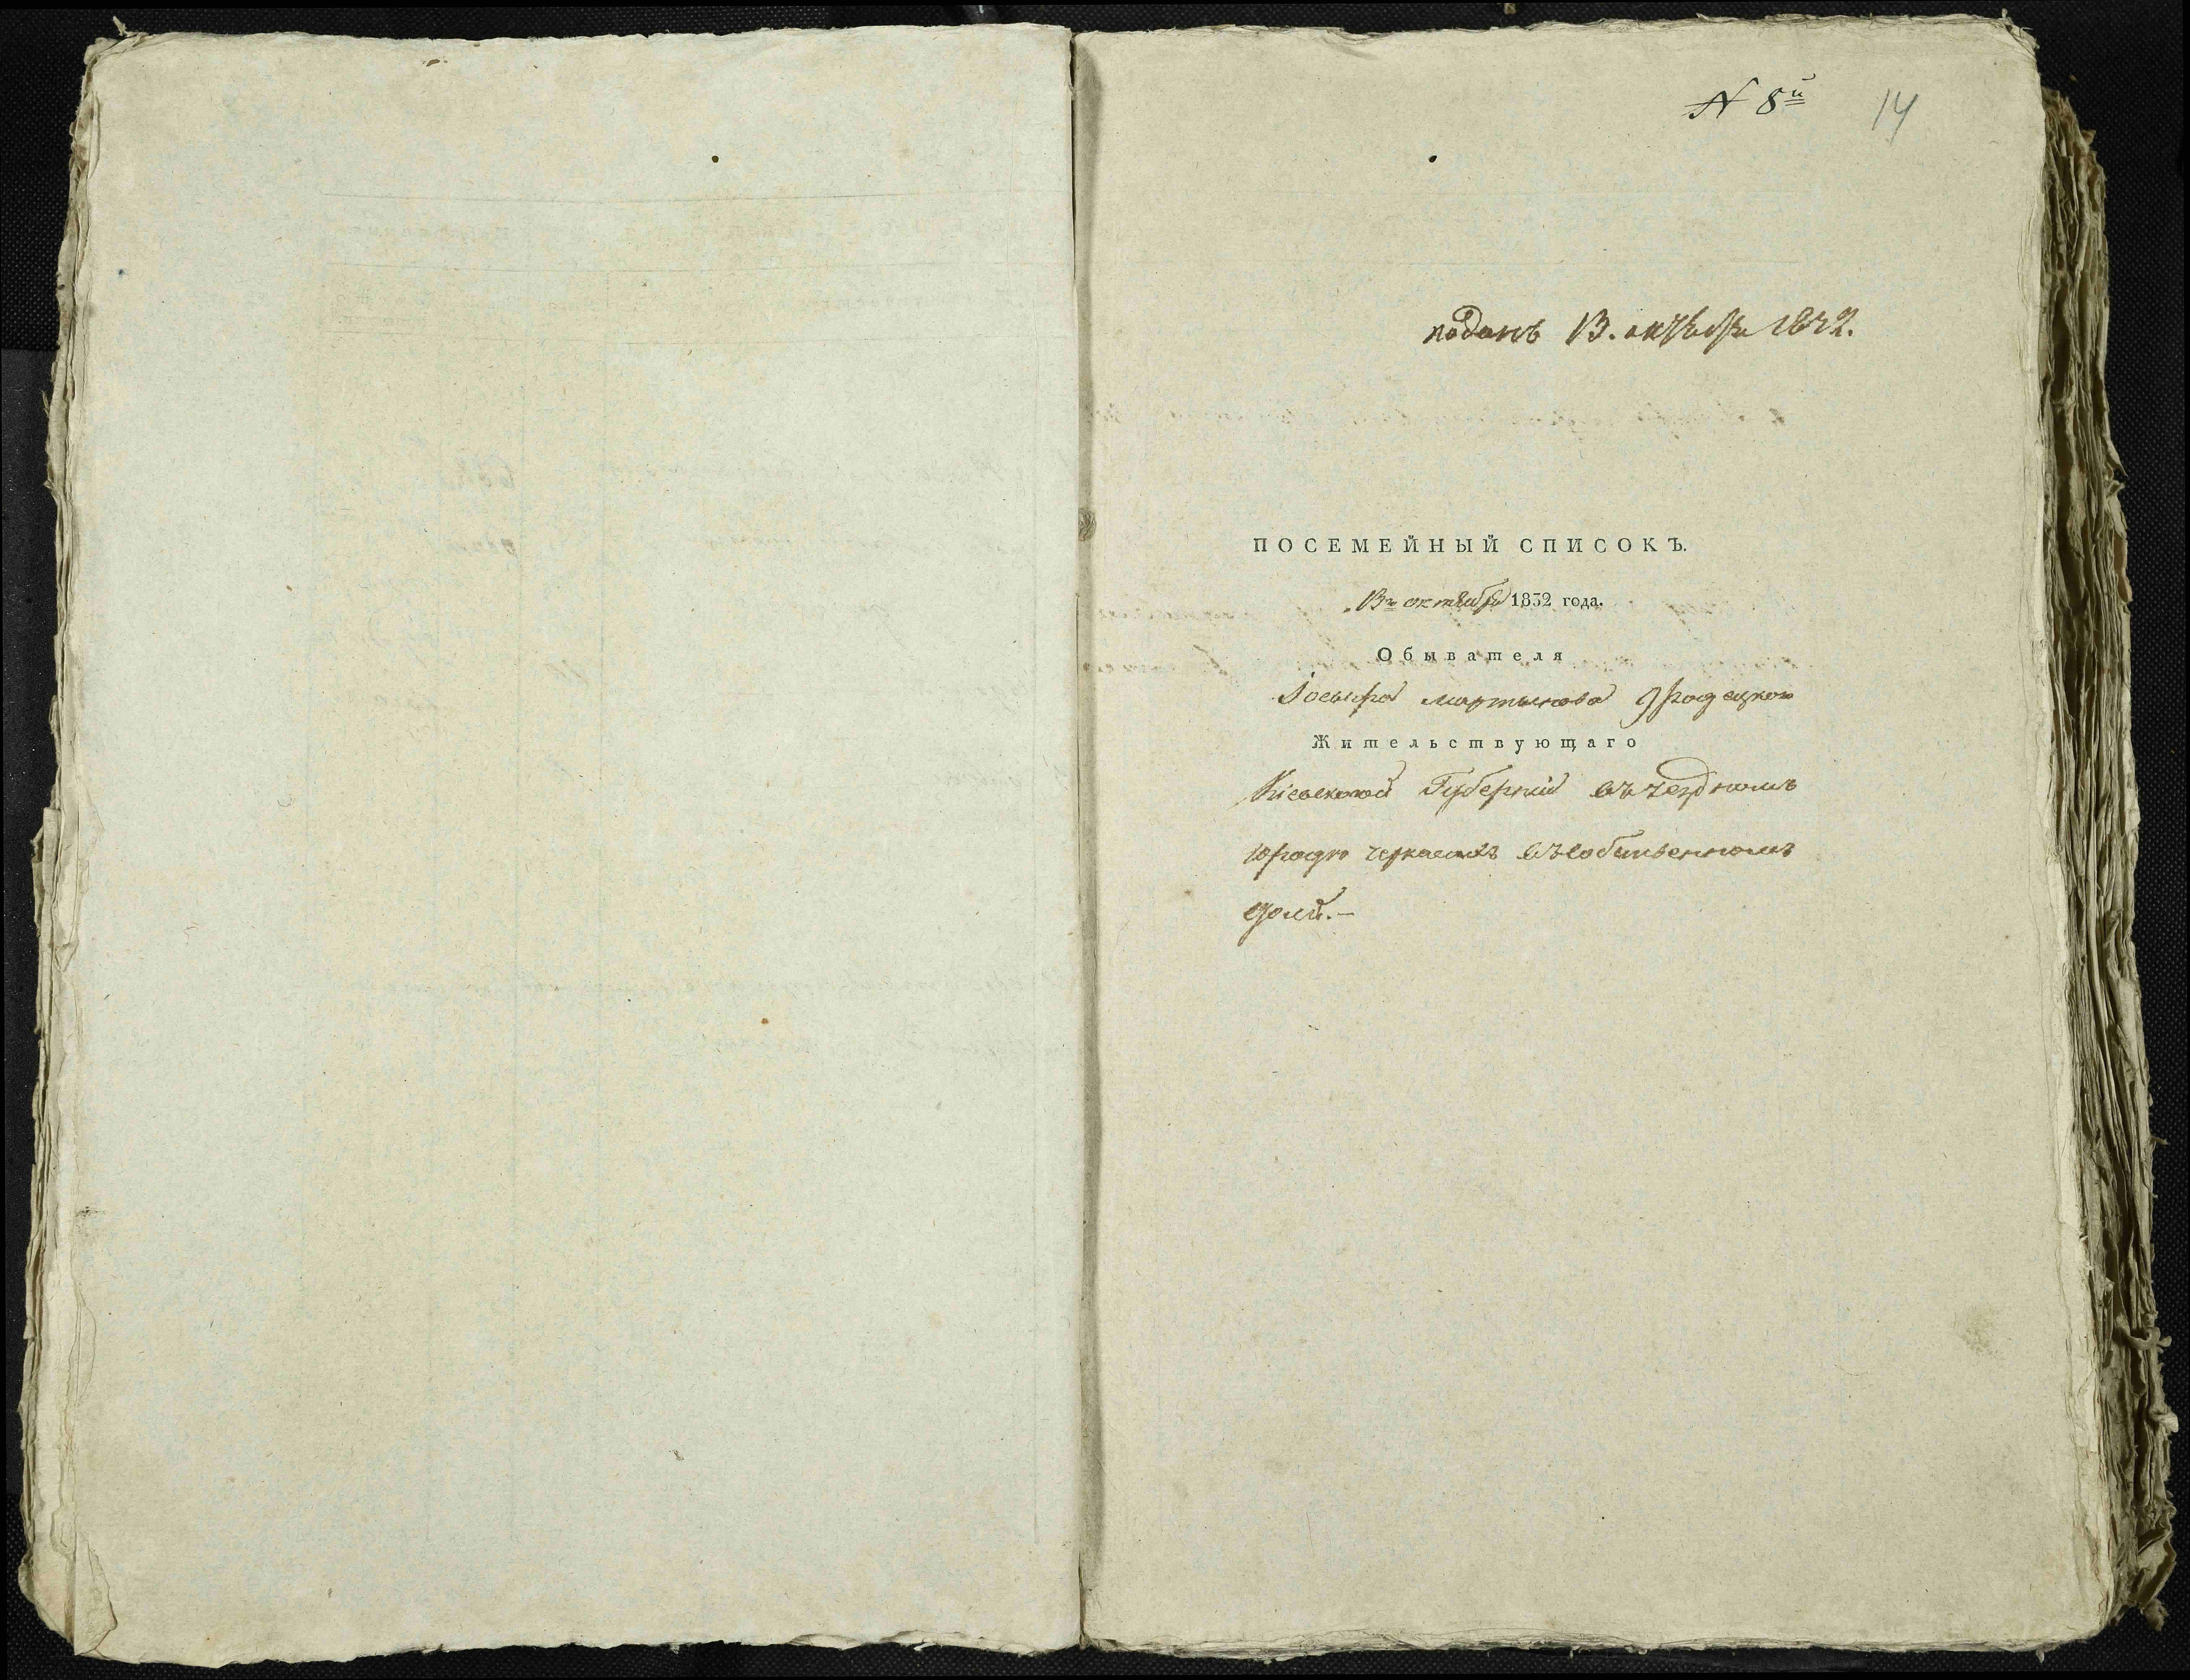 № 8й
14
поданъ 13. октября 1832.
ПОСЕМЕЙНЫЙ СПИСОКЪ.
13го октября 1832 года.
Обывателя
Іосифа Мартынова Градецкого
Жительствующаго
Кіевской Губерніи въ уездномъ
городе черкасахъ въ собственномъ
доми.—